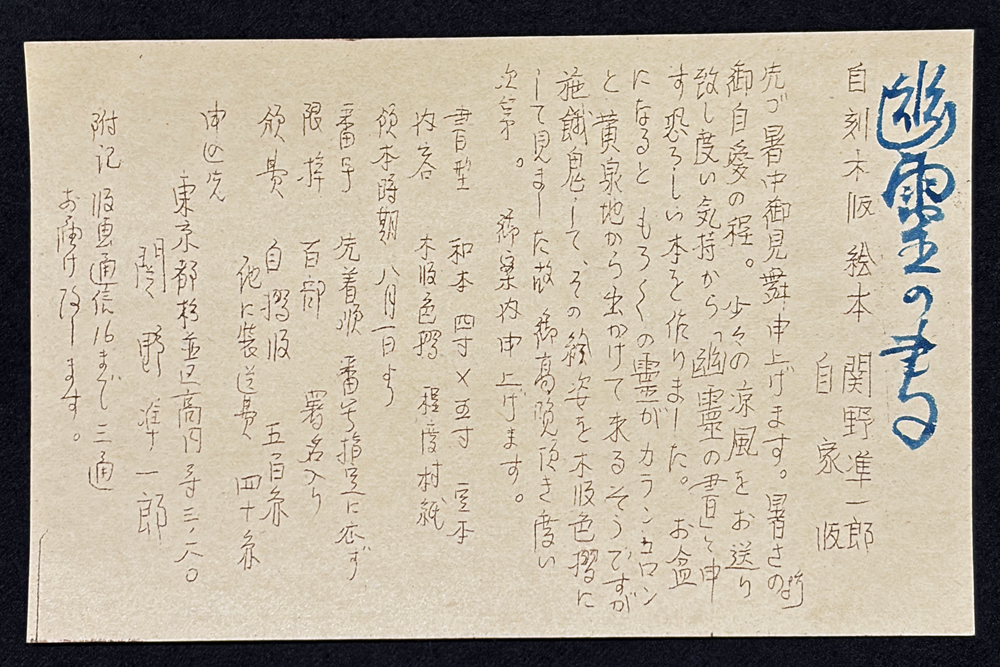 幽霊の書
自刻木版 絵本 関野凖一郎
自家版
先づ暑中御見舞申上げます。暑さの折
御自愛の程。少々の涼風をお送り
致し度い気持から「幽靈の書」と申
す恐ろしい本を作りました。お盆
になると もろ〱の靈がカランコロン
と黄泉地から出かけて来るそうですが
施餓鬼して、その絵姿を木版色摺に
して見ました故 御高覧頂き度い
次第。 御案内申上げます。
書型 和本 四寸×五寸 豆本
内容 木版色摺 程度村紙
頒本時期 八月一日より
番号 先着順 番号指定に応ず
限定 百部 署名入り
頒費 自摺版 五百余
他に装送費 四十余
申込先
東京都杉並区高円寺三ノ二八〇
関野凖一郎
附記 版画通信16まで三通
お届け致します。